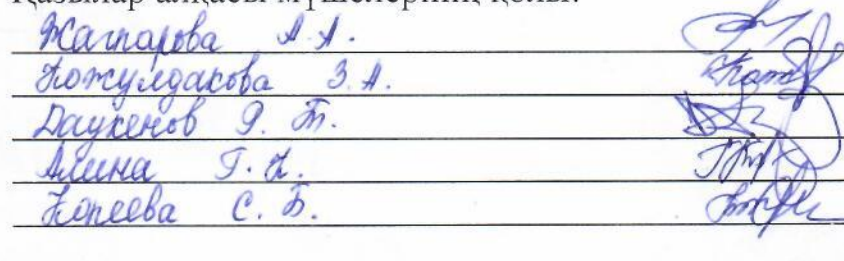 Қазылар алқасы мүшелерінің қолы:
Жагпарова А.А.
Кожулдакова З.А.
Даукенов Э. Т.
Алина Г. К.
Копеева С. Б.